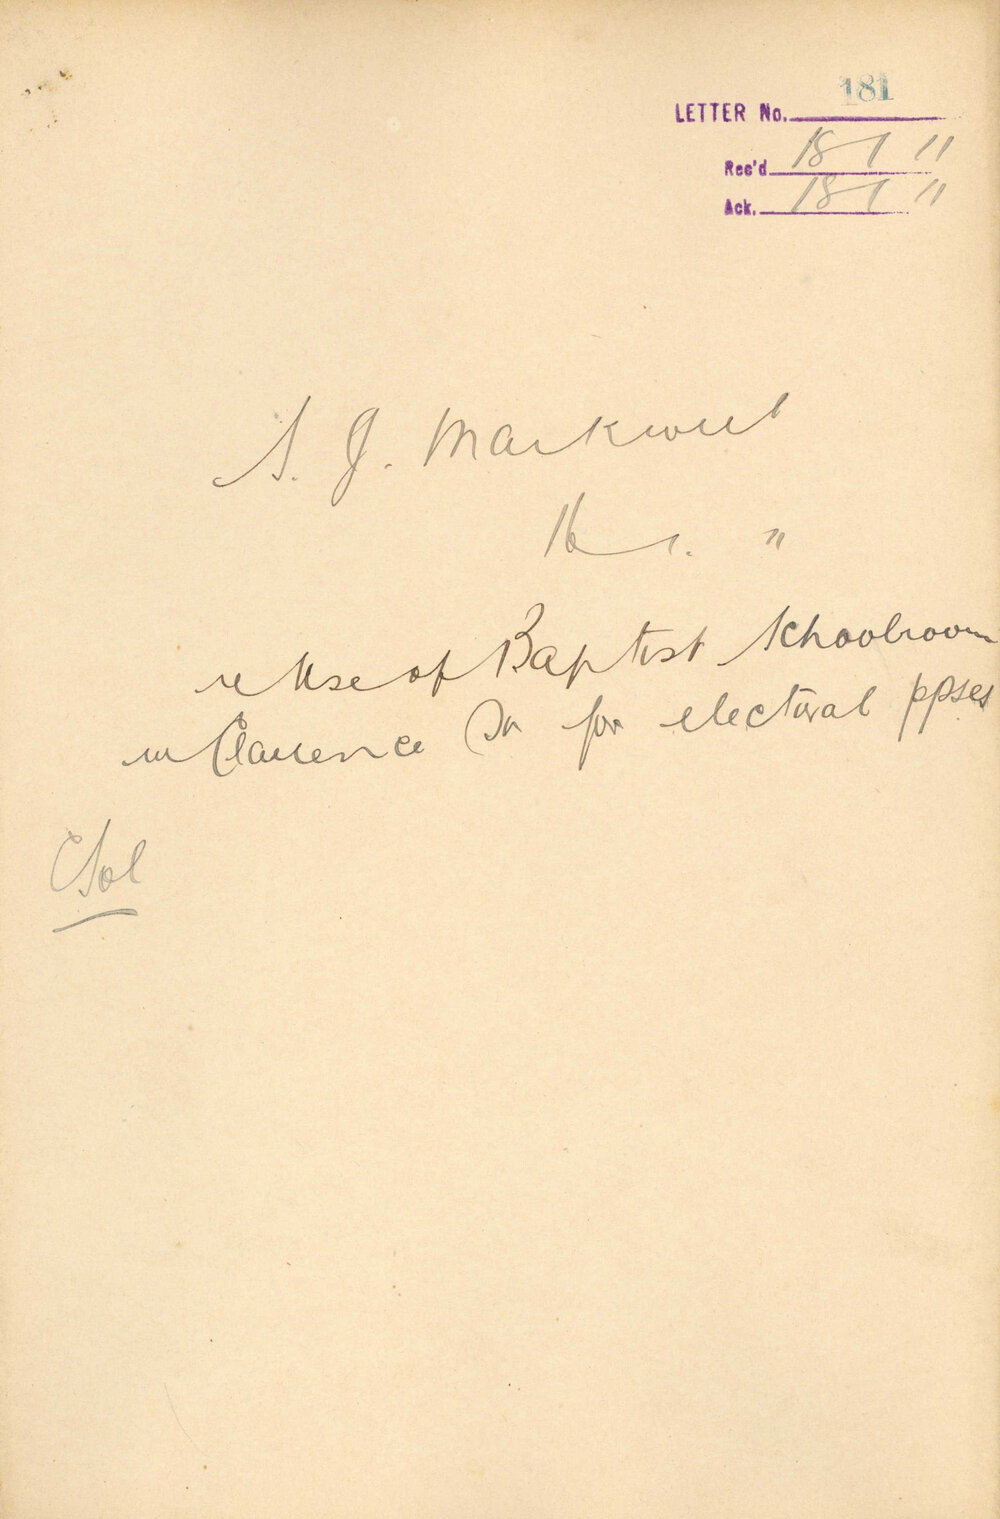 181
LETTER No.
Rec'd 18 1 11
Ack. 18 1 11
S. J. Markwell
16 1. "
re Use of Baptist Schoolroom
in Clarence Dn for electoral ppses
CSol